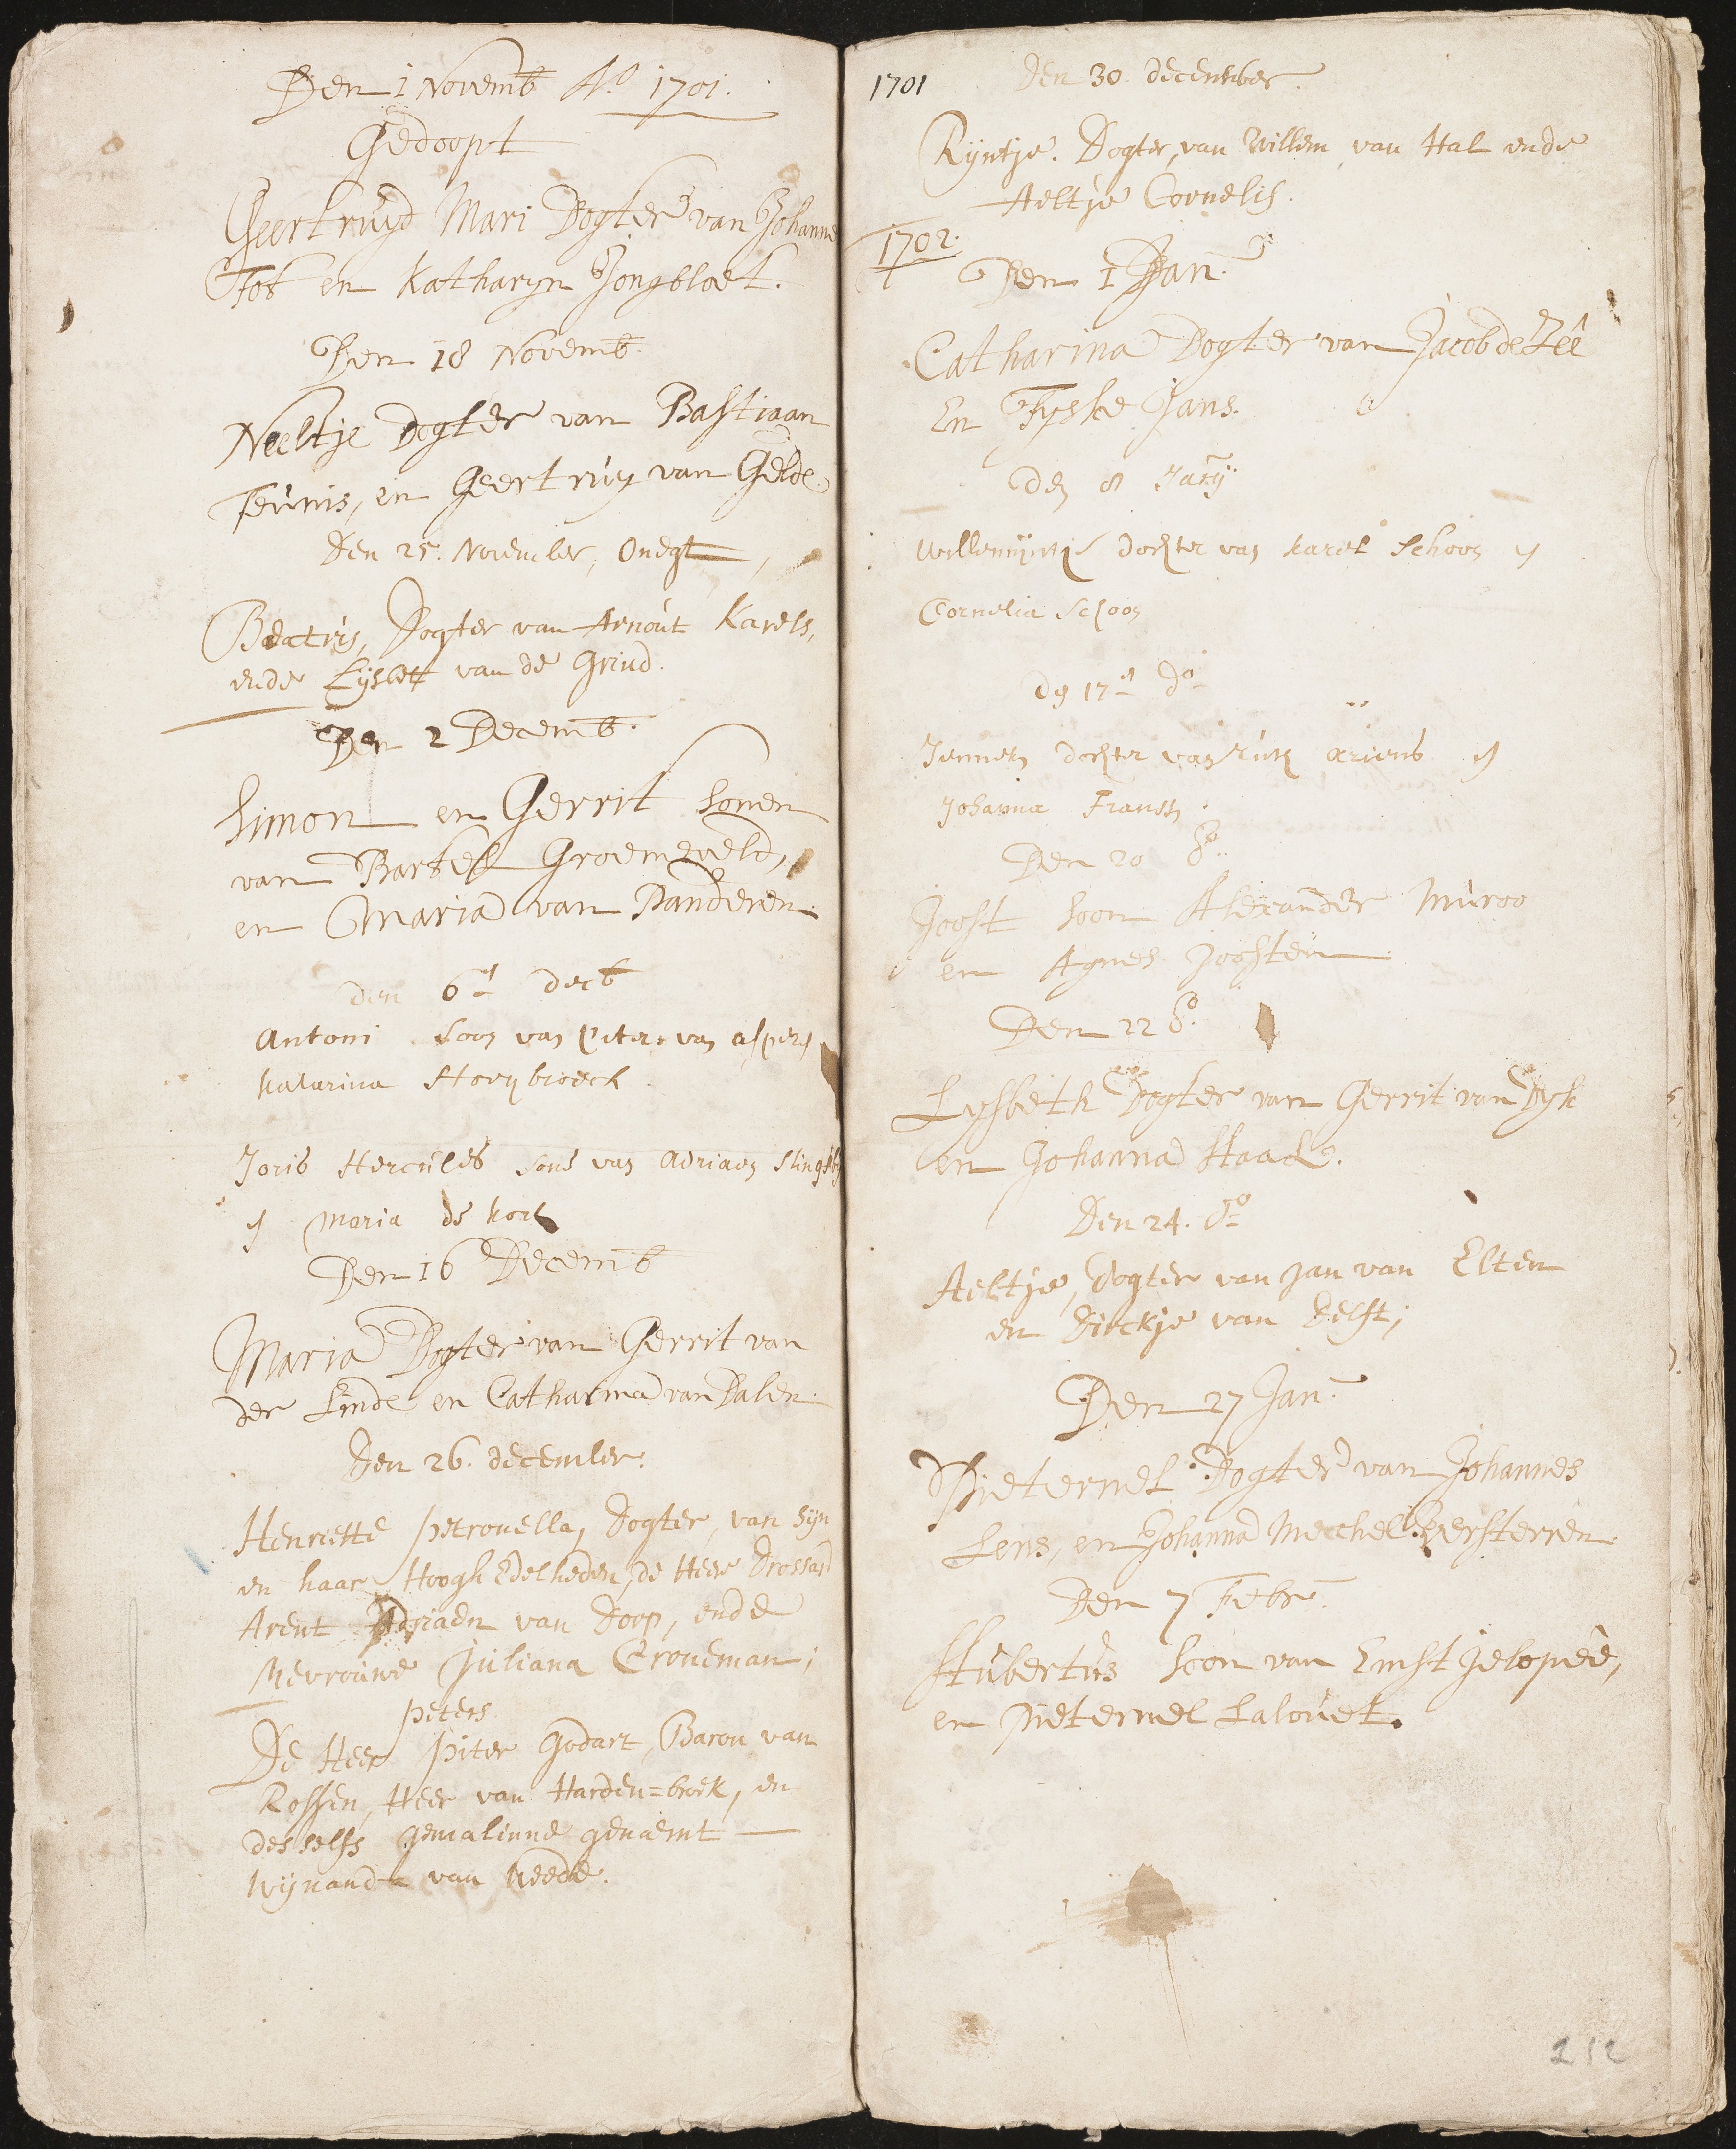 Den 1 Novemb Ao. 1701.
Gedoopt
Geertruyd Mari Dogter van Johanne
Tos en Katharyn Jongbloet.
Den 18 Novemb.
Neeltje Dogter van Bastiaan
Teunis, en Geertruy van Gelde.
Den 25. November,
Beatris, Dogter van Arnout Karels,
ende Lijsbet van de Grind.
Den 2 Decemb.
Simon en Gerrit sonen
van Bartel Groeneveld,
en Maria van Panderen.
den 6en decb
Antoni soon van Peter van Asperen
Katarina Hooybroeck
Joris Hercules sone van Adriaen
en Maria de Kock
Den 16 Decemb
Maria Dogter van Gerrit van
der Linde en Catharina van Dalen.
Den 26. december.
Henriette Petronella, Dogter, van sijn
en haar Hoogh Edelheden, de Heer Drossard
Arent Adriaen van Dorp, ende
Mevrouwe Juliana Croneman;
peters
De Heer Piter Godart, Baron van
Rossen, Heer van Harden=broek, en
desselfs gemalinne genaemt —
Wijnanda van Weede.
1701
Den 30. december.
Rijntje. Dogter, van Willem van Hal ende
Aeltje Cornelis.
1702.
Den 1 Jan.
Catharina Dogter van Jacob de Zêê
En Fyske Jans.
den 8 Janij
Willemijntje dochter van Karel Schoon en
Cornelia Schoon
den 17en do
Jenneken dochter van Ariens en
Johanna Franssen.
Den 20 do.
Joost soon Alexander Muroo
en Agnes Joosten
Den 22 do.
Lysbeth Dogter van Gerrit van Dyk
en Johanna Staal.
Den 24. do
Aeltje, Dogter van Jan van Elten
en Dirckje van Delft;
Den 27 Jan.
Pieternel Dogter van Johannes
Lens, en Johanna Mechel Versterren.
Den 7 Febr.
Hubertus soon van Ernst Jelopéé,
en Pieternel Lalouet.
212